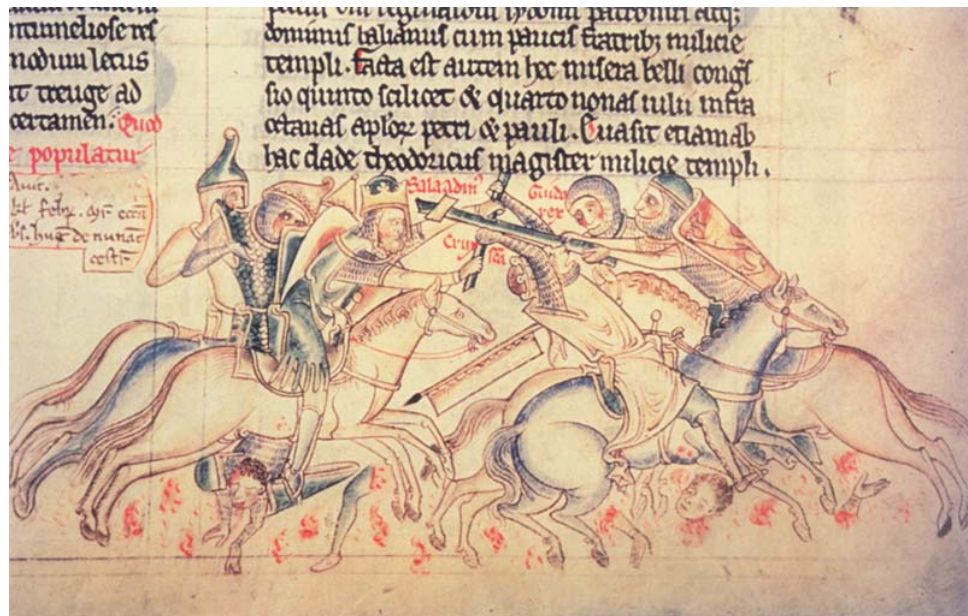 ntumeliose res
modum letus
treuge ad
certamen. Quod
e populatur
febr.
de
atq;
dominus balianus cum paucis fratribz milicie
templi. facta est autem hec misera belli congs
sio quinto scilicet & quarto nonas iulii infra
octauas aplorz petri & pauli. Euasit etiam ab
hac clade theodoricus magister milicie templi.
Saladin'
Guido
rex
Crux sca